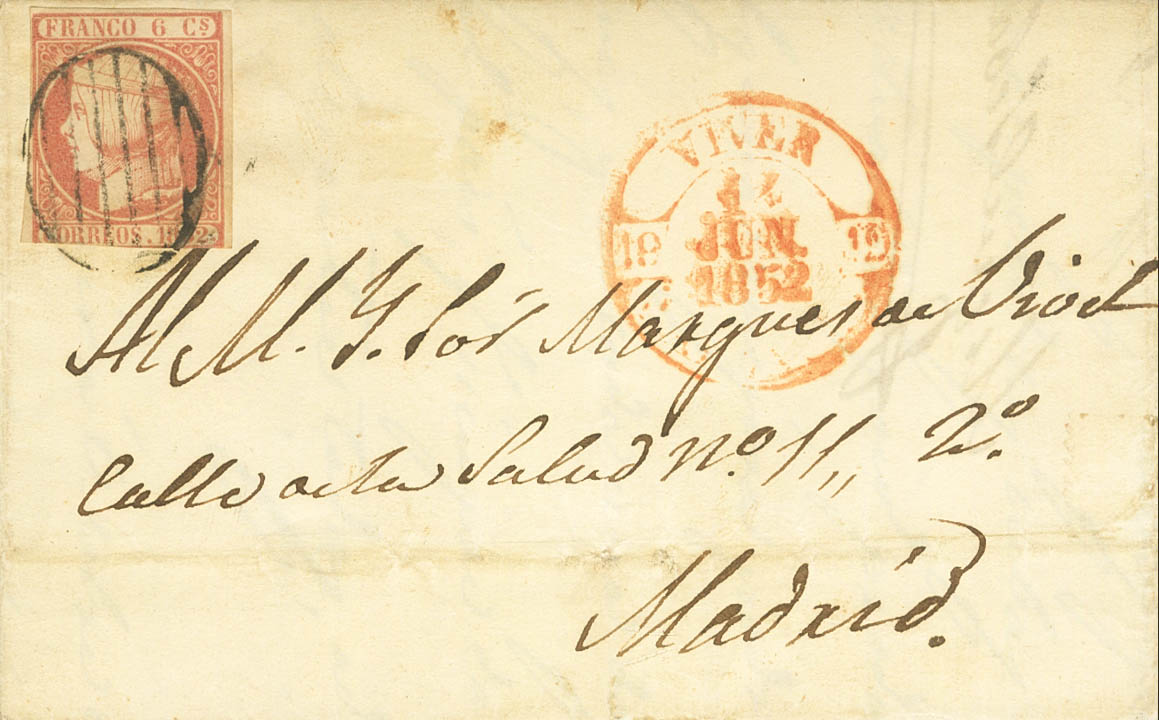 FRANCO 6 Cs
CORREOS. 1852.
VIVER
14
JUN.
1852
19 19
Al M. Y. Sor Marques de
Calle de la Salud No. 11,, 2o.
Madrid.